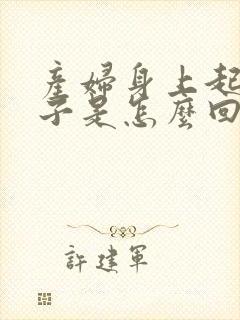 產婦身上起
子是怎麼回
許建軍